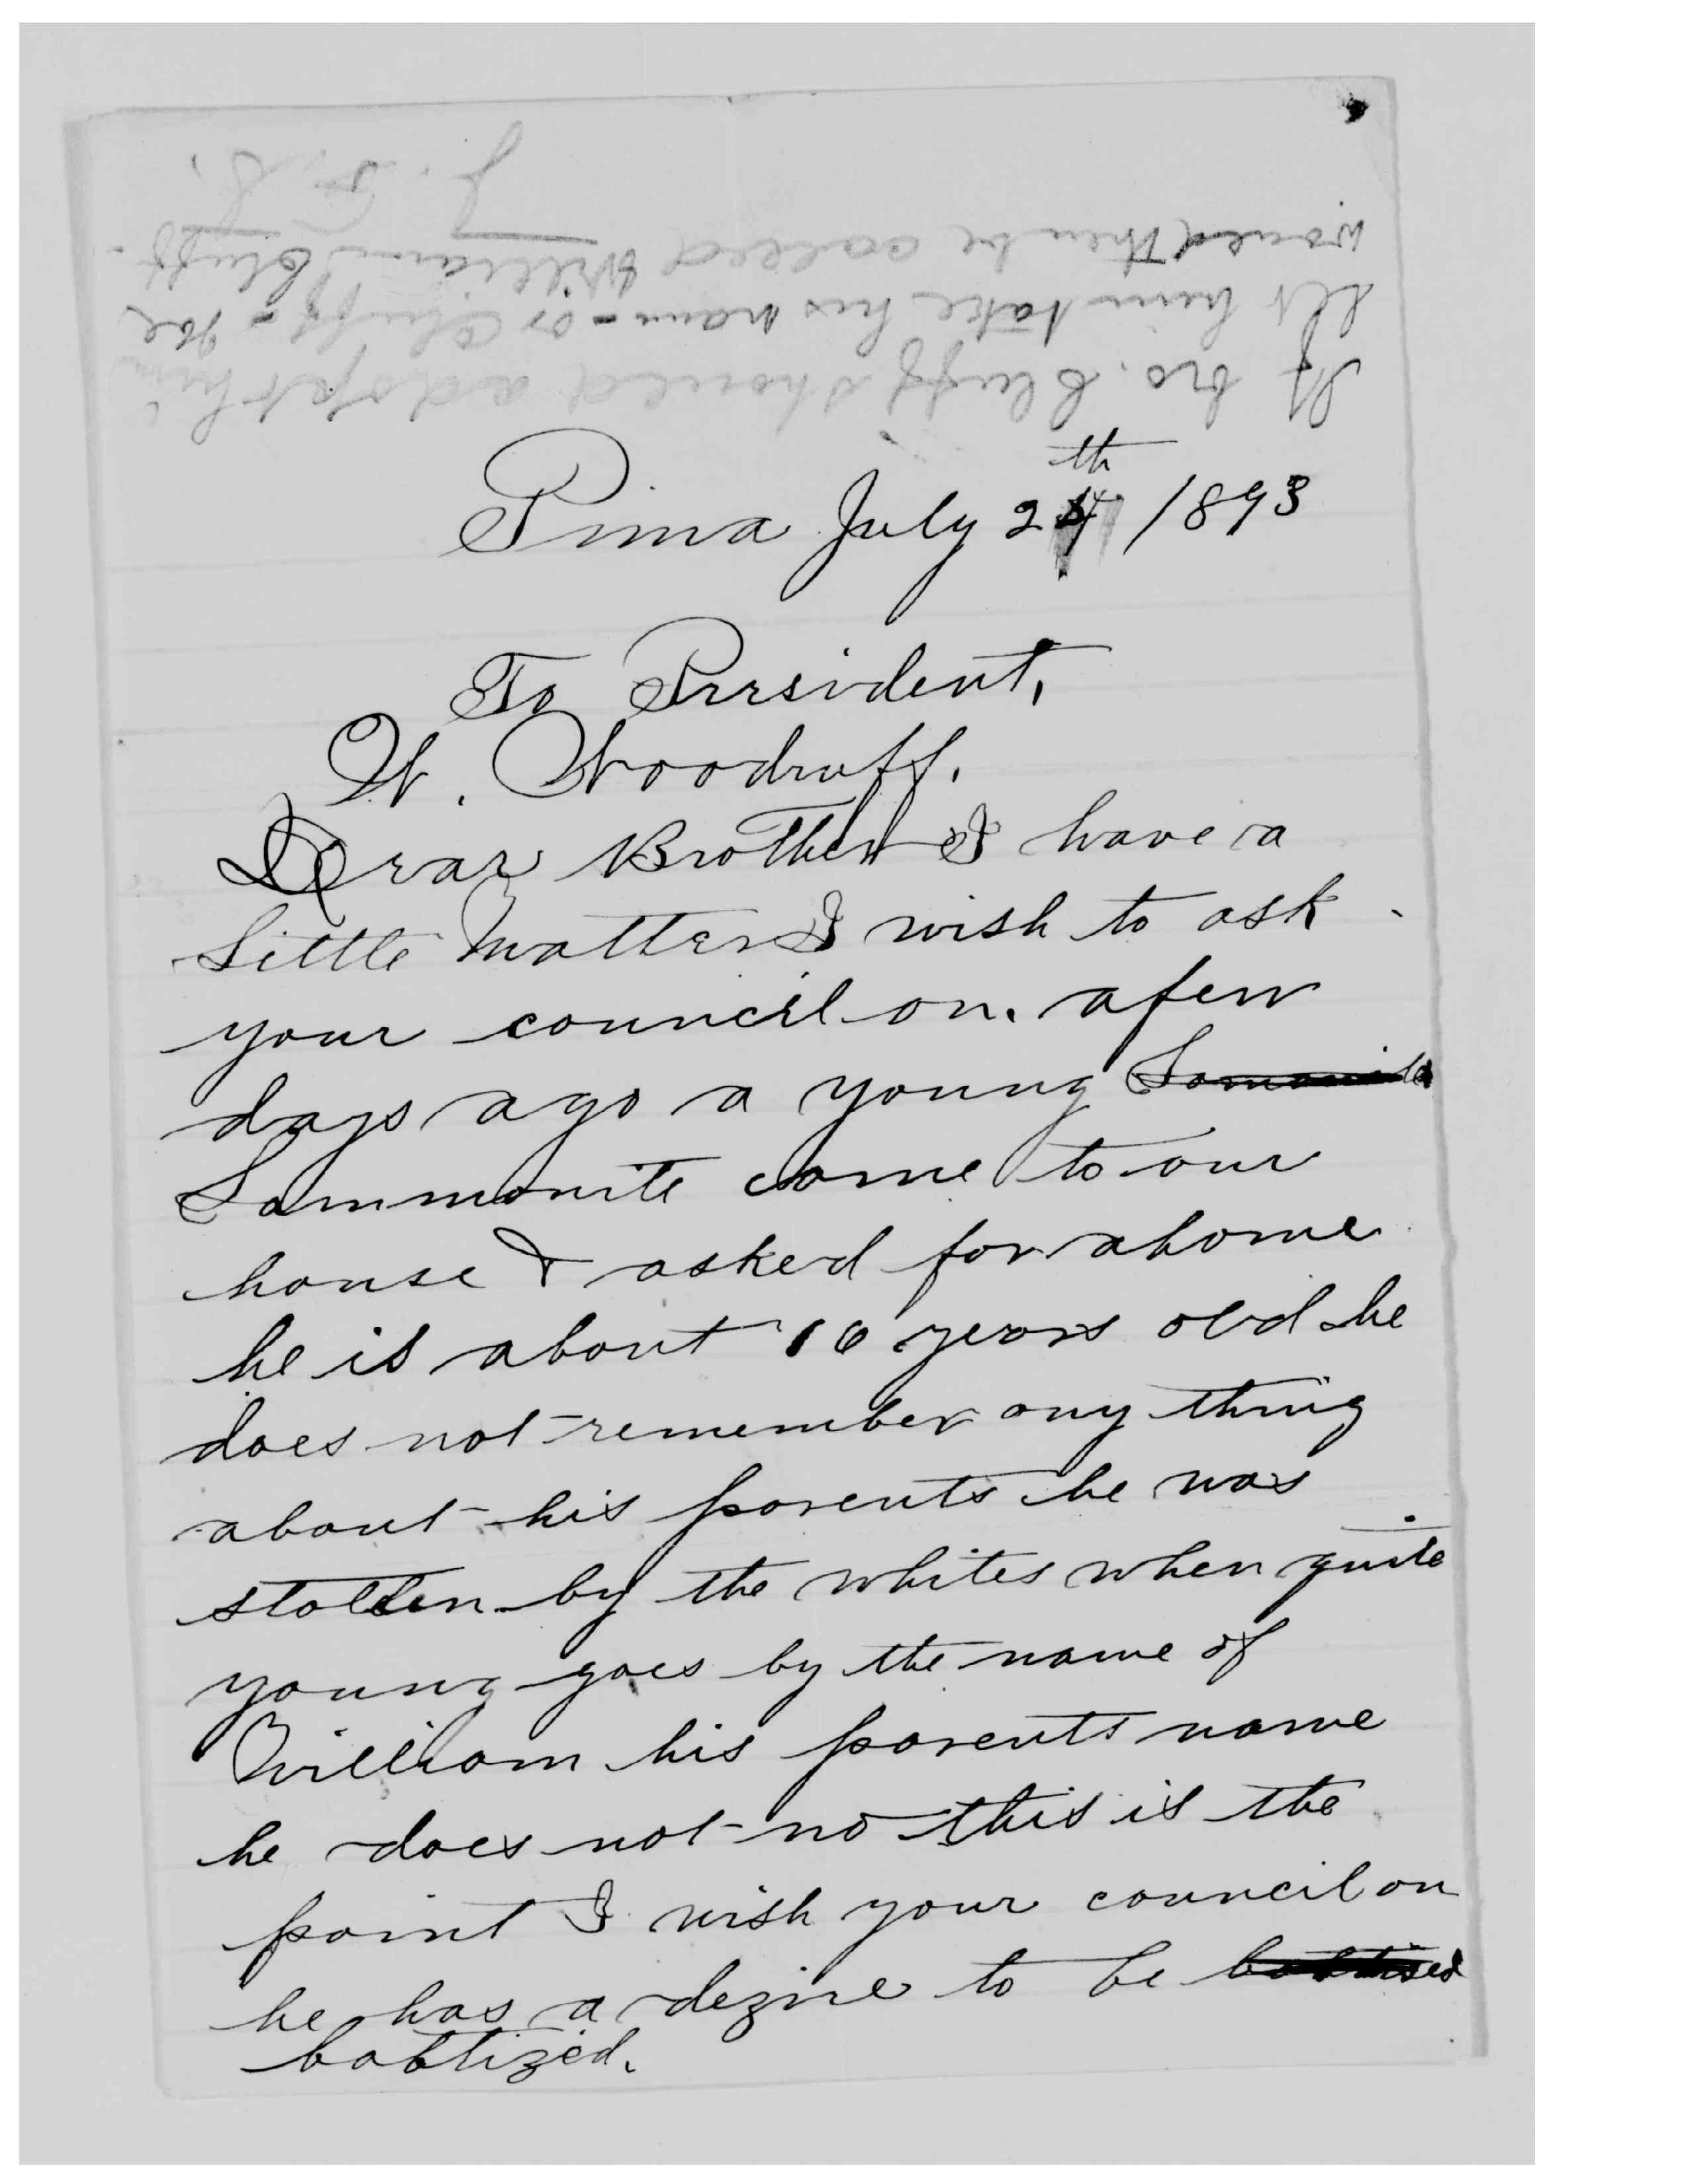 If bro. Cluff should adopt him
let him take his name - or Cluff - he
would then be called William Cluff.
J. F. S.
Pima July 24th 1893
To President,
W. Woodruff.
Dear Brother I have a
little matter I wish to ask
your council on. a few
days ago a young Lamanite
Lammonite came to our
house & asked for a home
he is about 16 years old he
does not remember any thing
about his parents he was
stollen by the whites when quite
young goes by the name of
William his parents name
he does not no this is the
point I wish your council on
he has a dezire to be babtised
babtized.